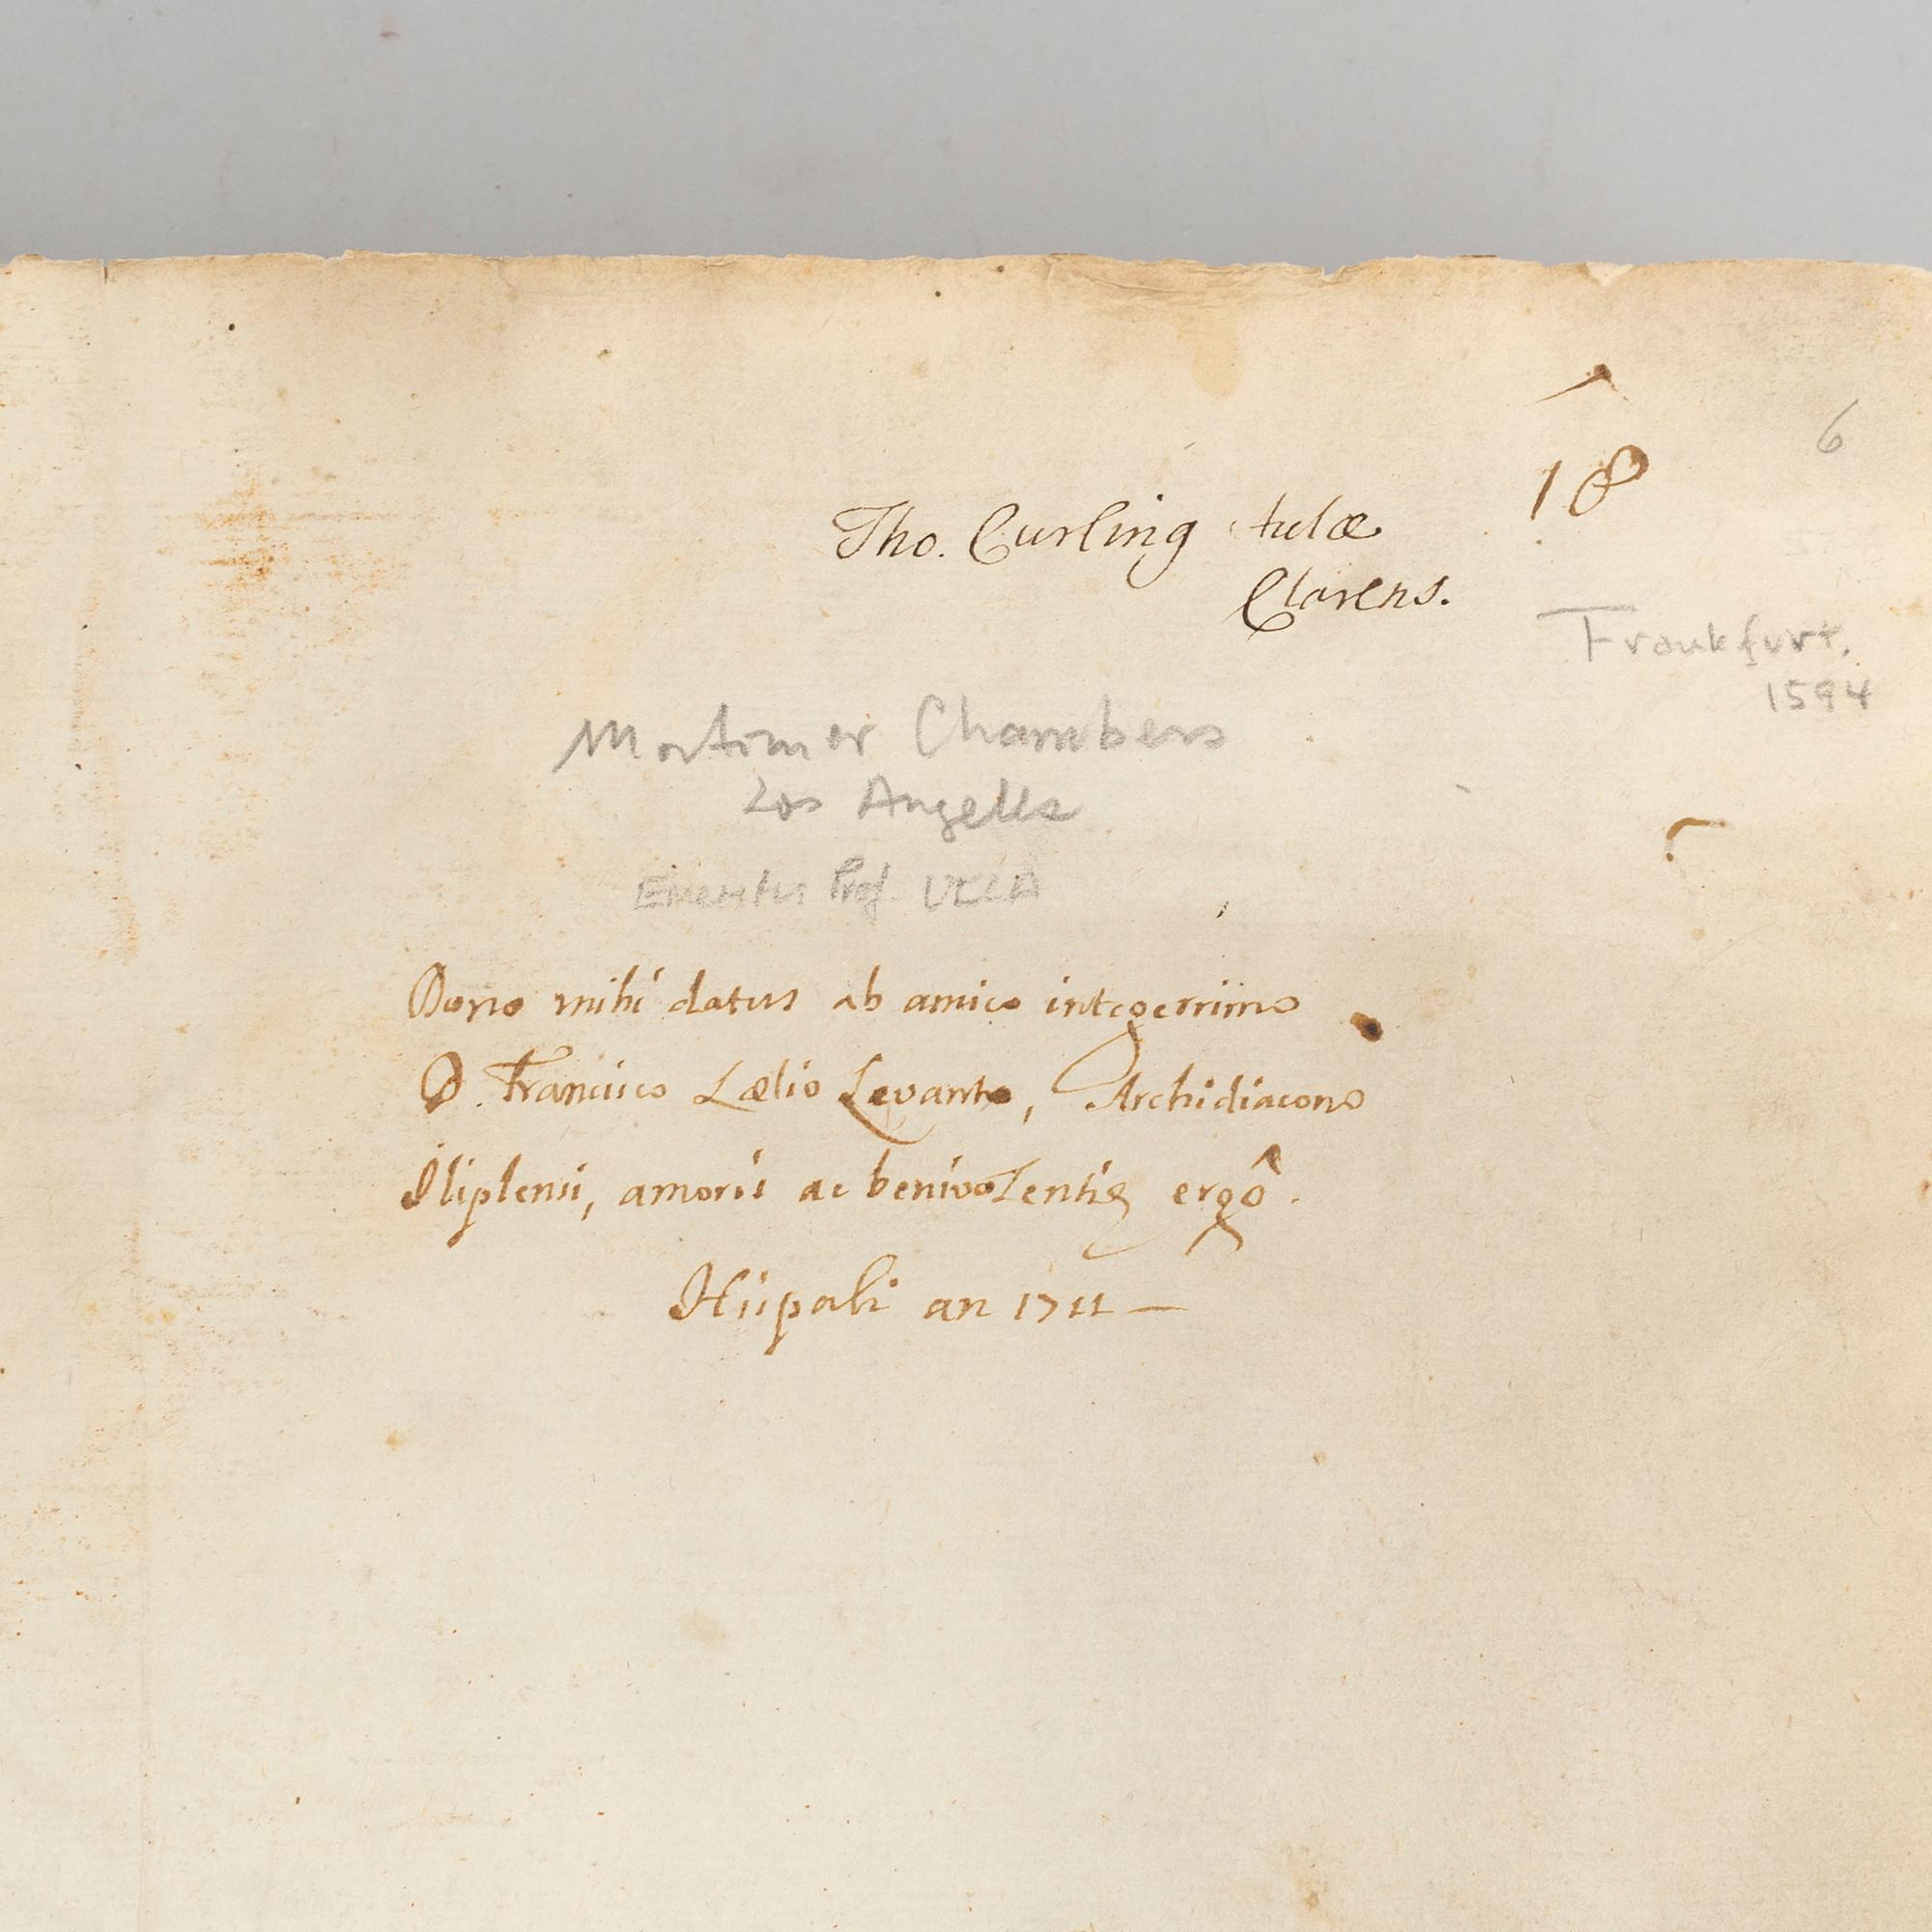 6
18
Tho. Curling Aulæ
Clarens.
Frankfurt.
1594
Mortimer Chambers
Los Angeles
Emeritus Prof. UCLA
Dono mihi datus ab amico integerrimo
D. Francisco Lælio Levanto, Archidiacono
Iliplensi, amoris ac benivolentiæ ergô.
Hispali an 1711 —